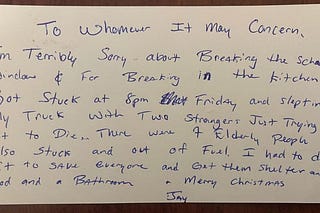 To Whomever It May Concern,
I'm Terribly Sorry about Breaking the
window & For Breaking in the Kitchen
Got Stuck at 8pm Friday and slept in
My Truck with Two Strangers Just Trying
to Die. There were 7 Elderly People
also Stuck and out of Fuel. I had to do
it to Save everyone and Get them Shelter and
Food and a Bathroom. Merry Christmas
Jay